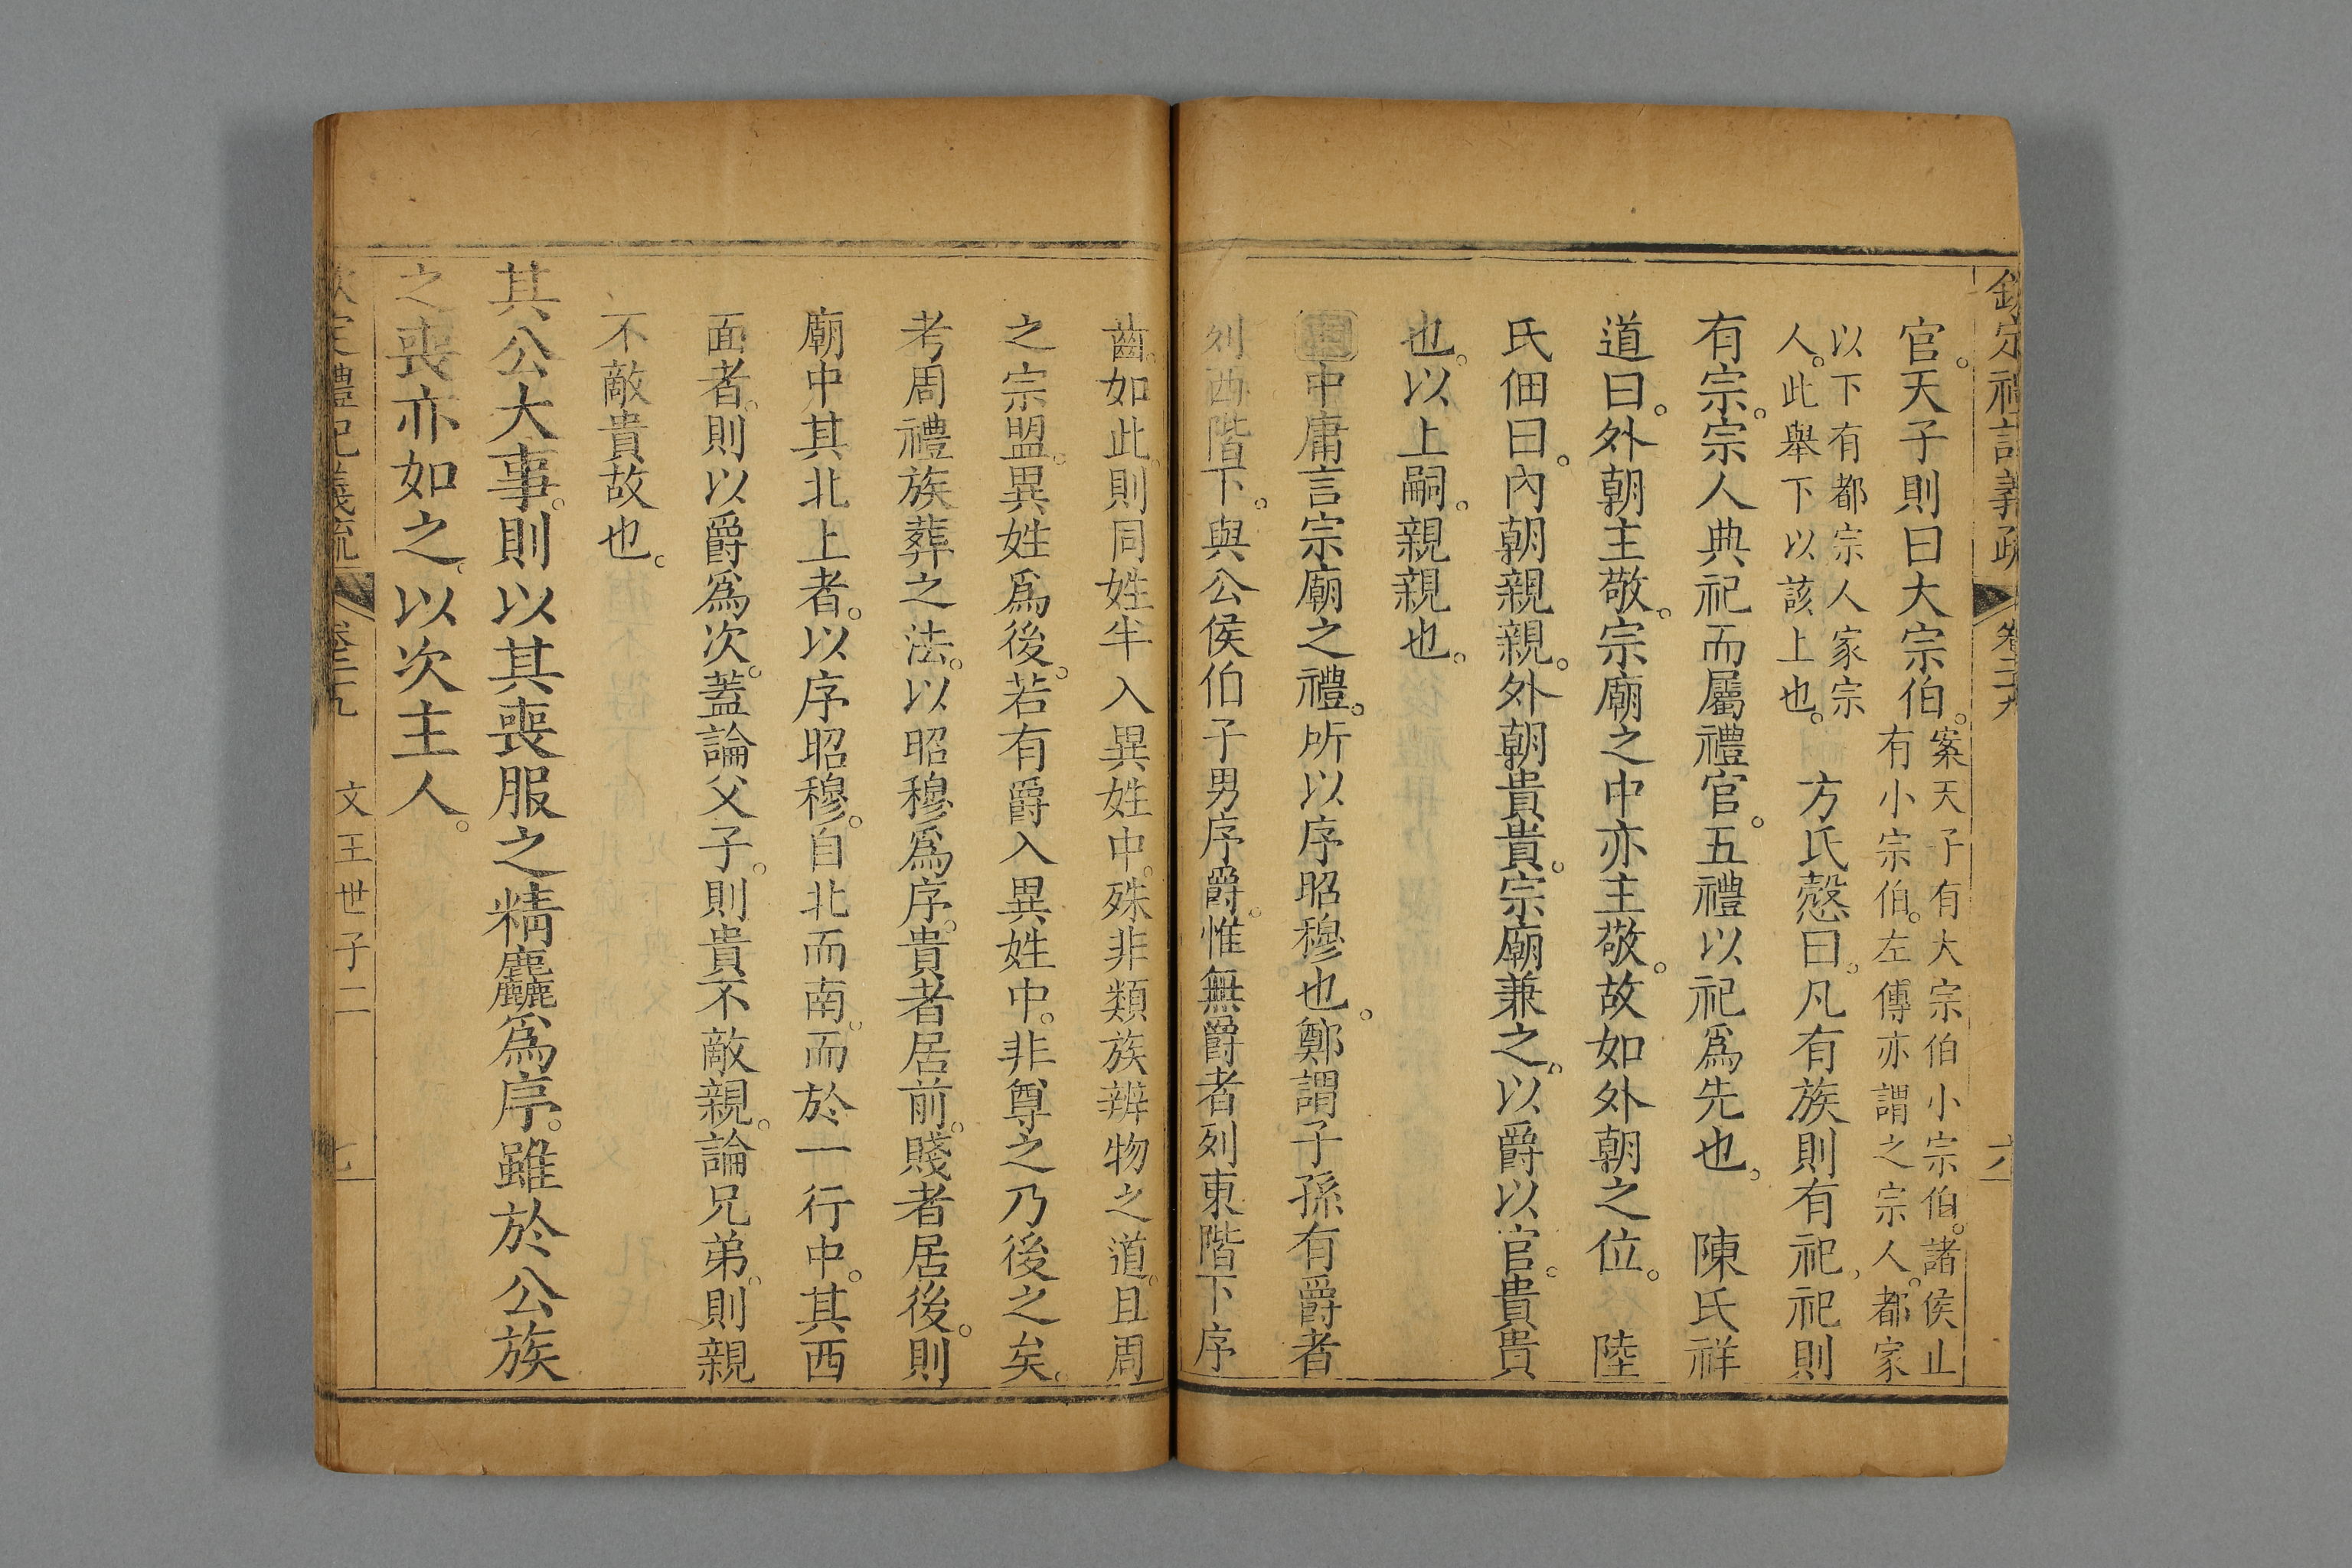 欽定禮記義疏 卷二十九 六
官。天子則曰大宗伯。案天子有大宗伯小宗伯。諸侯止
有小宗伯。左傳亦謂之宗人。都家
以下有都宗人家宗
人。此舉下以該上也。
方氏慤曰。凡有族則有祀。祀則
有宗。宗人典祀而屬禮官。五禮以祀爲先也。 陳氏祥
道曰。外朝主敬。宗廟之中亦主敬。故如外朝之位。 陸
氏佃曰。內朝親親。外朝貴貴。宗廟兼之。以爵以官。貴貴
也。以上嗣。親親也。
中庸言宗廟之禮。所以序昭穆也。鄭謂子孫有爵者
列西階下。與公侯伯子男序爵。惟無爵者列東階下序
齒。如此則同姓半入異姓中。殊非類族辨物之道。且周
之宗盟。異姓爲後。若有爵入異姓中。非尊之乃後之矣。
考周禮族葬之法。以昭穆爲序。貴者居前。賤者居後。則
廟中其北上者。以序昭穆。自北而南。而於一行中。其西
面者。則以爵爲次。蓋論父子。則貴不敵親。論兄弟。則親
不敵貴故也。
其公大事。則以其喪服之精麤爲序。雖於公族
之喪亦如之。以次主人。
欽定禮記義疏 卷二十九 文王世子二 七